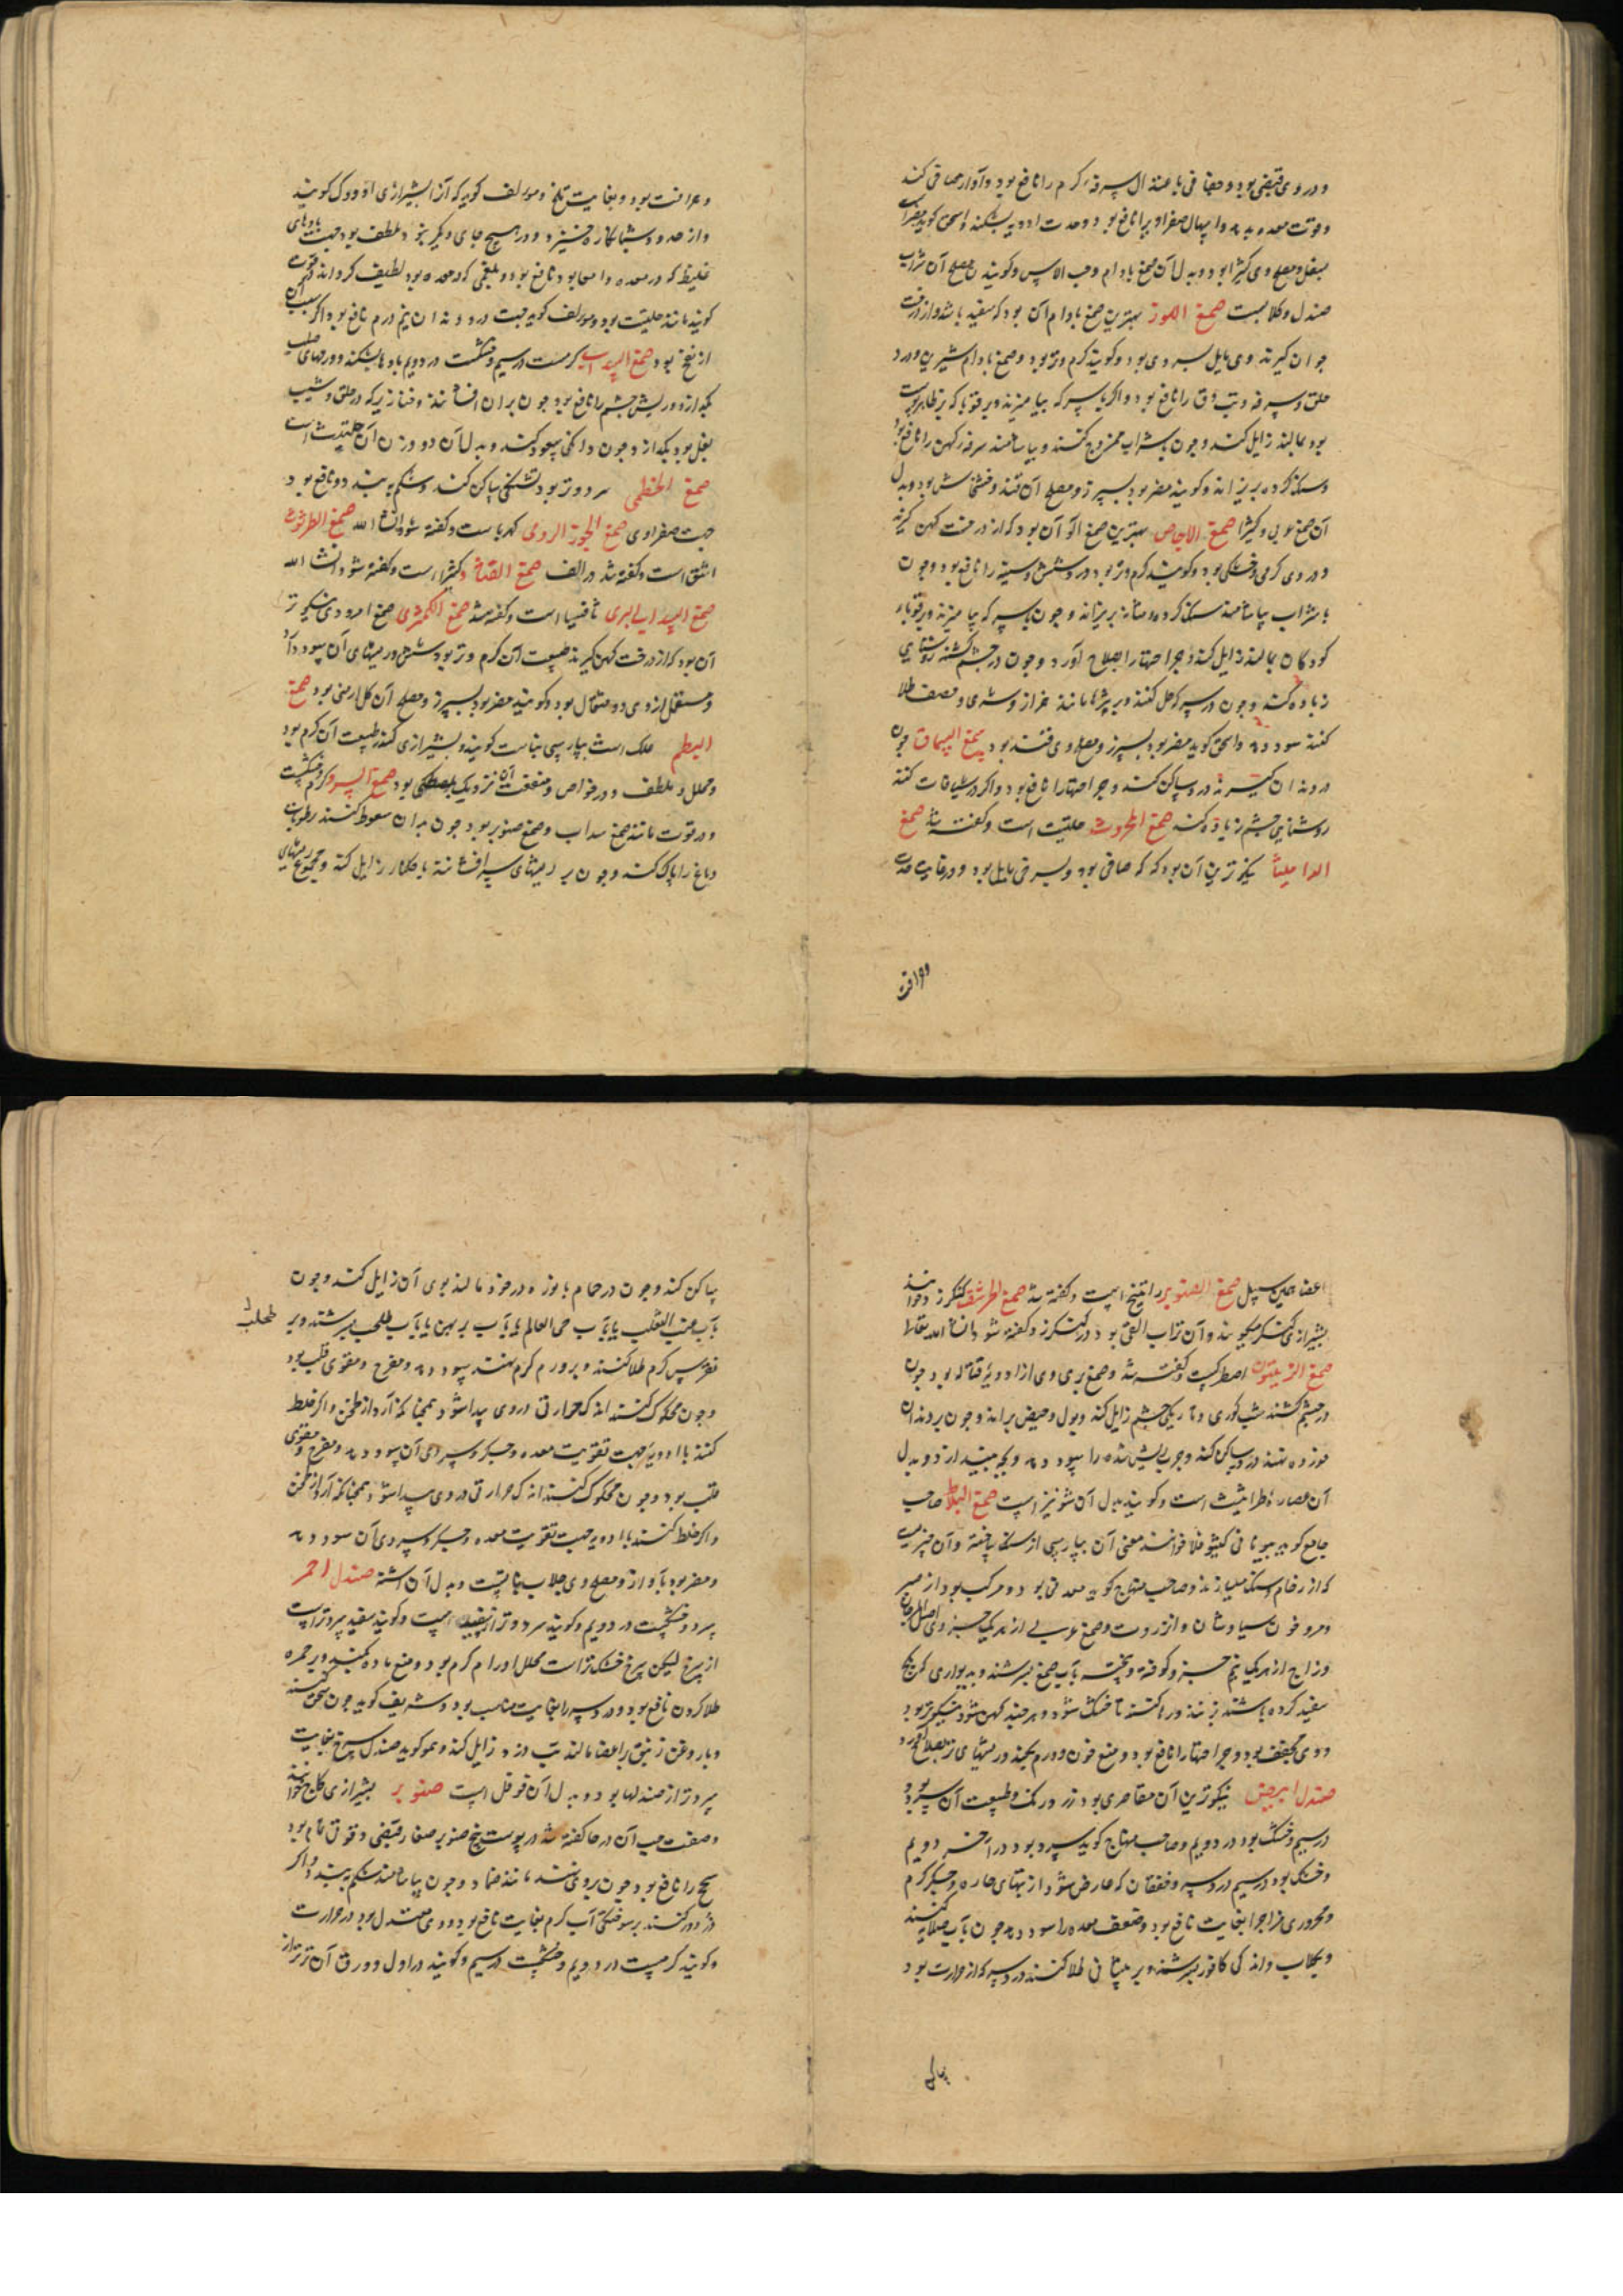 ودر وی قبضی بود و حقنا فی باعتدال سرفه کرم را نافع بود و آواز صافی کند
وقوت معده بدهد واسهال صفراویرا نافع بود وحدت ادویه بشکند واسحق کوید مضرات
بسفل ومصلح وی کثیرا بود وبدل آن صمغ بادام وحب الاس وکویند مصلح آن شراب
صندل وکلابست صمغ اللوز بهترین صمغ بادام آن بود که سفید باشد واز درخت
جوان کیرند وی مایل بسردی بود وکویند کرم وتر بود وصمغ بادام شیرین درد
حلق وسرفه وتب دق را نافع بود واکر با سرکه بیامیزند وبر قوبا که بر ظاهر پوست
بود بمالند زایل کند وچون بشراب ممزوج کنند وبیاشامند سرفه کهن را نافع بود
وسنک کرده بریزاند وکویند مضر بود بسپرز ومصلح آن قند وخشخاش بود وبدل
آن صمغ عربی وکثیرا صمغ الاجاص بهترین صمغ آلو آن بود که از درخت کهن کیرند
ودر وی کرمی وخشکی بود وکویند کرم وتر بود درد شش وسینه را نافع بود وچون
با شراب بیاشامند سنک کرده ومثانه بریزاند وچون با سرکه بیامیزند وبر قوباء
کودکان بمالند زایل کند وجراحتها را اصلاح آورد وچون در چشم کشند روشنایی
زیاده کند وچون در سرکه حل کنند وبر بثرها مانند خراز وشری وحصف طلا
کنند سود دهد واسحق کوید مضر بود بسپرز ومصلح وی قند بود صمغ السماق چون
در دندان کیرند درد ساکن کند وجراحتها را نافع بود واکر در شیافات کنند
روشنایی چشم زیاده کند صمغ المحروث حلتیت است وکفته شد صمغ
الدامیثا نیکوترین آن بود که صافی بود وبسرخی مایل بود ودر غایت حدت
وحرافت بود وبغایت تلخ ومولف کوید که آن را بشیرازی اودوک کویند
واز حدود شبانکاره خیزد ودر هیچ جای دیکر نبود ملطف بود جهت بادهای
غلیظ که در معده وامعا بود نافع بود وبلغمی که در معده بود لطیف کرداند وقوت
کویند مانند حلتیت بود ومولف کوید جهت درد دندان نیم درم نافع بود اکر سبب آن
از نفخ بود صمغ السداب کرمست در سیم وخشکست در دویم بادها بشکند وورمهای صلب
بکدازد وریش چشم را نافع بود چون بران افشانند وخنازیر که در حلق وشیب
بغل بود بکدازد وچون دانکی سعوط کنند وبدل آن دو وزن آن حلتیت است
صمغ الخطمی سرد وتر بود تشنکی ساکن کند وشکم ببندد ونافع بود
جهت صفراوی صمغ الجوز الرومی کهرباست وکفته شود انشا الله صمغ الطرثوث
اشق است وکفته شد در الف صمغ القتاد کثیرا است وکفته شود انشا الله
صمغ السداب البری ثافسیا است وکفته شد صمغ الکمثری صمغ امرود نیکوتر
آن بود که از درخت کهن کیرند طبیعت آن کرم وتر بود شش وریشهای آن سود دارد
ومستعمل از وی دو مثقال بود وکویند مضر بود بسپرز ومصلح آن کل ارمنی بود صمغ
البطم علک است بپارسی بناست کویند وبشیرازی کندر طبیعت آن کرم بود
ومحلل وملطف ودر خواص ومنفعت آن نزدیک بمصطکی بود صمغ السرو کرم وخشکست
ودر قوت مانند صمغ سداب وصمغ صنوبر بود چون بدان سعوط کنند رطوبات
دماغ را پاک کند وچون بر ریشهای سر افشانند با حکاک زایل کند ومجموع ریشهای
وواقر
اعضا همین سبیل صمغ الصنوبر راتینج است وکفته شد صمغ الحرشف کنکرزد خوانند
بشیرازی کنکر کویند وآن تراب القی بود در کنکرزد کفته شود انشاء الله تعالی
صمغ الزیتون اصطرکست کفته شد وصمغ بری وی از ادویهٔ قتاله بود چون
در چشم کشند شب کوری وتاریکی چشم زایل کند وبول وحیض براند وچون بر دندان
خورده نهند درد ساکن کند وجرب ریش شده را سود دهد وبچه بیندازد وبدل
آن عصارهٔ طراثیث است وکویند بدل آن شونیز است صمغ البلاط صاحب
جامع کوید بیونانی کیثو قلا خوانند معنی آن بپارسی از سنک پخته وآن چیزیست
که از رخام وسنک میسازند وصاحب منهاج کوید معدنی بود ومرکب بود از صبر
ومر وخون سیاوشان وانزروت وصمغ عربی از هریک جزوی اصل المرجان
وزاج از هریک نیم جزو کوفته وپخته بآب صمغ بسرشند وبدیواری که کچ
سفید کرده باشند بزنند ورها کنند تا خشک شود وهرچند کهن شود نیکوتر بود
ووی مجفف بود وجراحتها را نافع بود ومنع خون وورم بکند وریشهای تر بصلاح آورد
صندل ابیض نیکوترین آن مقاصری بود زرد رنک وطبیعت آن سرد بود
در سیم وخشک بود در دویم وصاحب منهاج کوید سرد بود در آخر دویم
وخشک بود در سیم درد سر وخفقان که عارض شود از تبهای حاره وجکر کرم
ومحروری مزاج را بغایت نافع بود وضعف معده را سود دهد چون بآب صلایه کنند
وبکلاب واندکی کافور بسرشند وبر پیشانی طلا کنند درد سر که از حرارت بود
ساکن
ساکن کند وچون در حمام با نوره در خود مالند بوی آن زایل کند وچون
بآب عنب الثعلب یا بآب حی العالم یا بآب پرپهن یا بآب طحلب بسرشند وبر
طحلب
نقرس کرم طلا کنند وبر ورم کرم نهند سود دهد ومفرح ومقوی قلب بود
وچون محکوک کنند اندک حرارتی در وی پیدا شود همچنانکه آرد از طحن واکر خلط
کنند با ادویه جهت تقویت معده وجکر وسردی آن سود دهد ومفرح ومقوی
قلب بود وچون محکوک کنند اندک حرارتی در وی پیدا شود همچنانکه آرد از طحن
واکر خلط کنند با ادویه جهت تقویت معده وجکر وسردی آن سود دهد
ومضر بود بآواز ومصلح وی جلاب نباتست وبدل آن اشنه صندل احمر
سرد وخشکست در دویم وکویند سرد وتر از سفید است وکویند سفید سردتر است
از سرخ لیکن سرخ خشک‌تر است محلل اورام کرم بود ومنع ماده بکند وبر حمره
طلا کردن نافع بود ودرد سر را بغایت مناسب بود وشریف کوید چون سحق کنند
وبا روغن زنبق بر اعضا مالند تب زود زایل کند وهمو کوید صندل سرخ بغایت
سردتر از صندلها بود وبدل آن فوفل است صنوبر بشیرازی کاج خوانند
وصفت حب آن در حا کفته شد در پوست بیخ صنوبر صغار قبضی وقوتی تمام بود
سحج را نافع بود چون بروی نهند مانند ضماد وچون بیاشامند شکم ببندد واکر
ذرور کنند بر سوختکی آب کرم بغایت نافع بود ووی معتدل بود در حرارت
وکویند کرمست در دویم وخشکست در سیم وکویند در اول وورق آن تر تر از